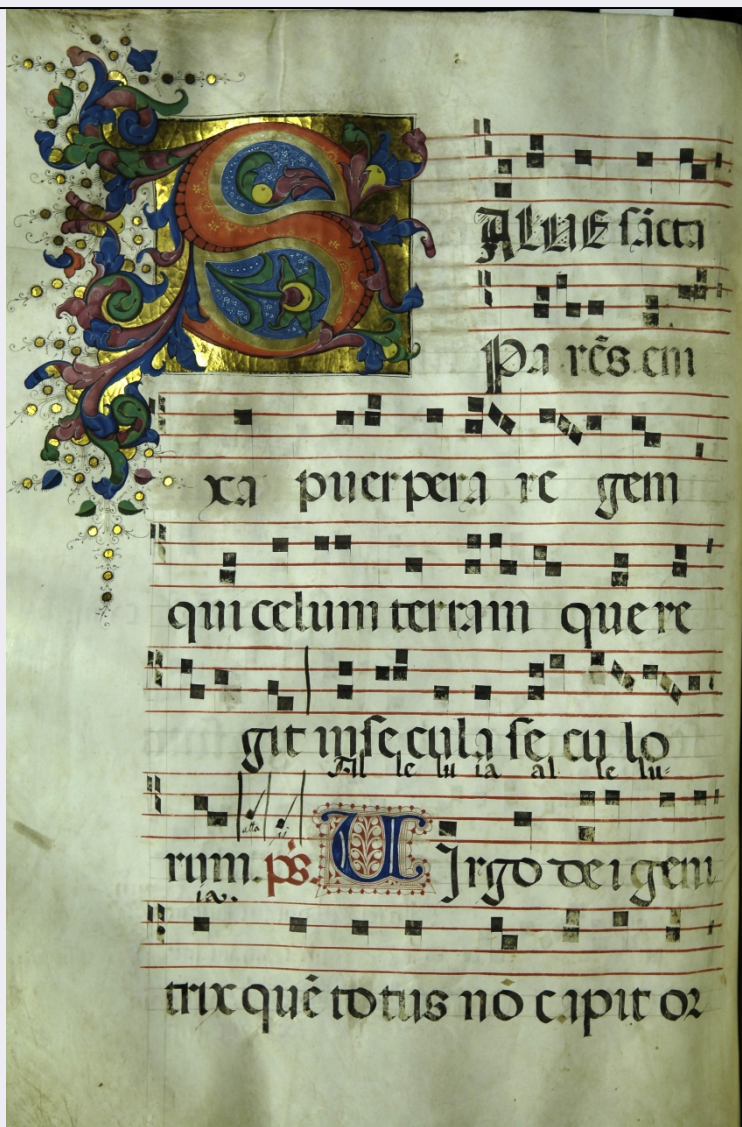 SALVE sācta
Parēs em
xa puerpera re gem
qui celum terram que re
git in secula se cu lo
All le lu ia al le lu=
rum. ps. Virgo dei geni
ia.
trix quē totus nō capit or